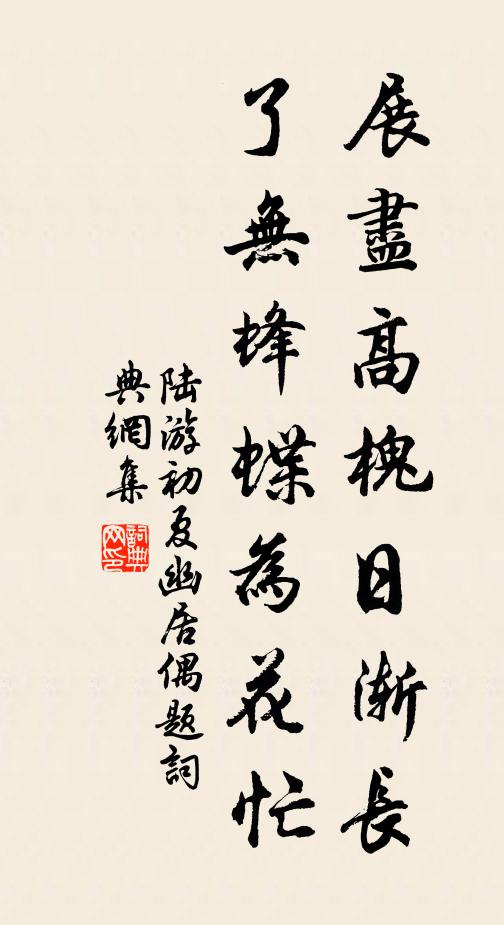 展盡高槐日漸長
了無蜂蝶為花忙
陸游初夏幽居偶題詞
典網集
詞典
网印